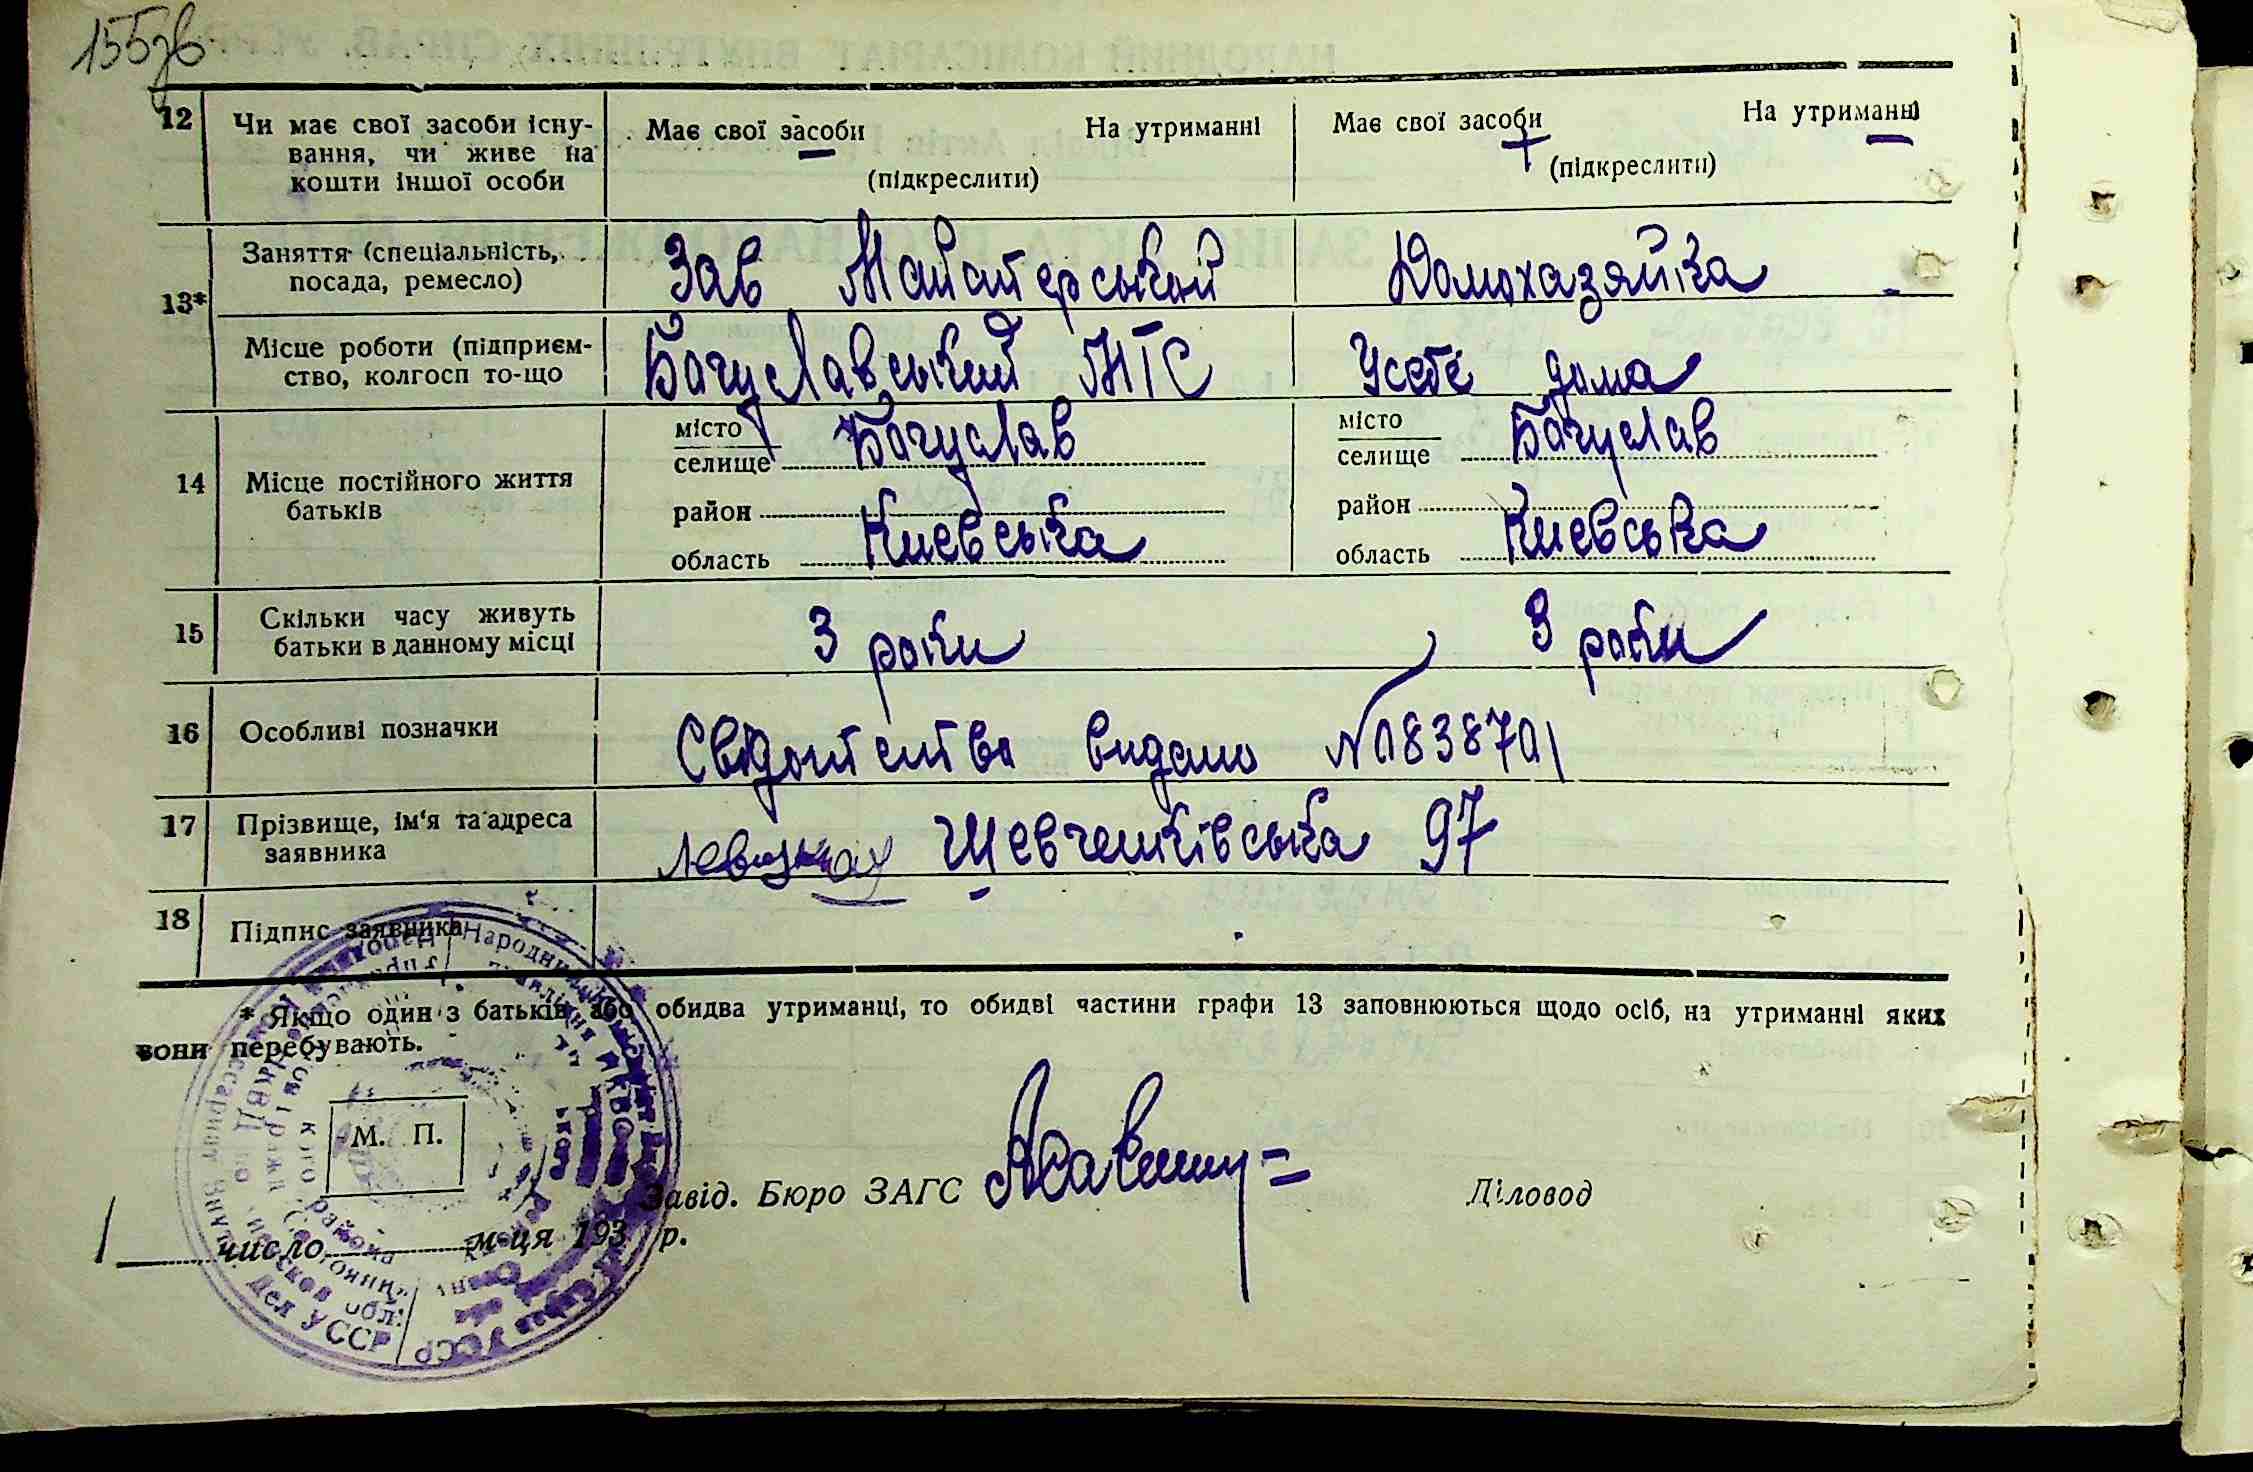 155зв
12 Чи має свої засоби існу- Має свої засоби На утриманні Має свої засоби На утриманні
вання, чи живе на (підкреслити) (підкреслити)
кошти іншої особи
13* Заняття (спеціальність, Зав Майстерською Домохазяйка
посада, ремесло)
Місце роботи (підприєм- Богуславський МТС Усебе дома
ство, колгосп то-що
14 Місце постійного життя місто Богуслав місто Богуслав
батьків селище селище
район район
область Киевська область Киевська
15 Скільки часу живуть 3 роки 3 роки
батьки в данному місці
16 Особливі позначки Свідоцтво видано №
17 Прізвище, ім'я та адреса Шевченківська 97
заявника
18 Підпис заявника
* Якщо один з батьків або обидва утриманці, то обидві частини графи 13 заповнюються щодо осіб, на утриманні яких
вони перебувають.
М. П.
Завід. Бюро ЗАГС Діловод
число м-ця 193 р.